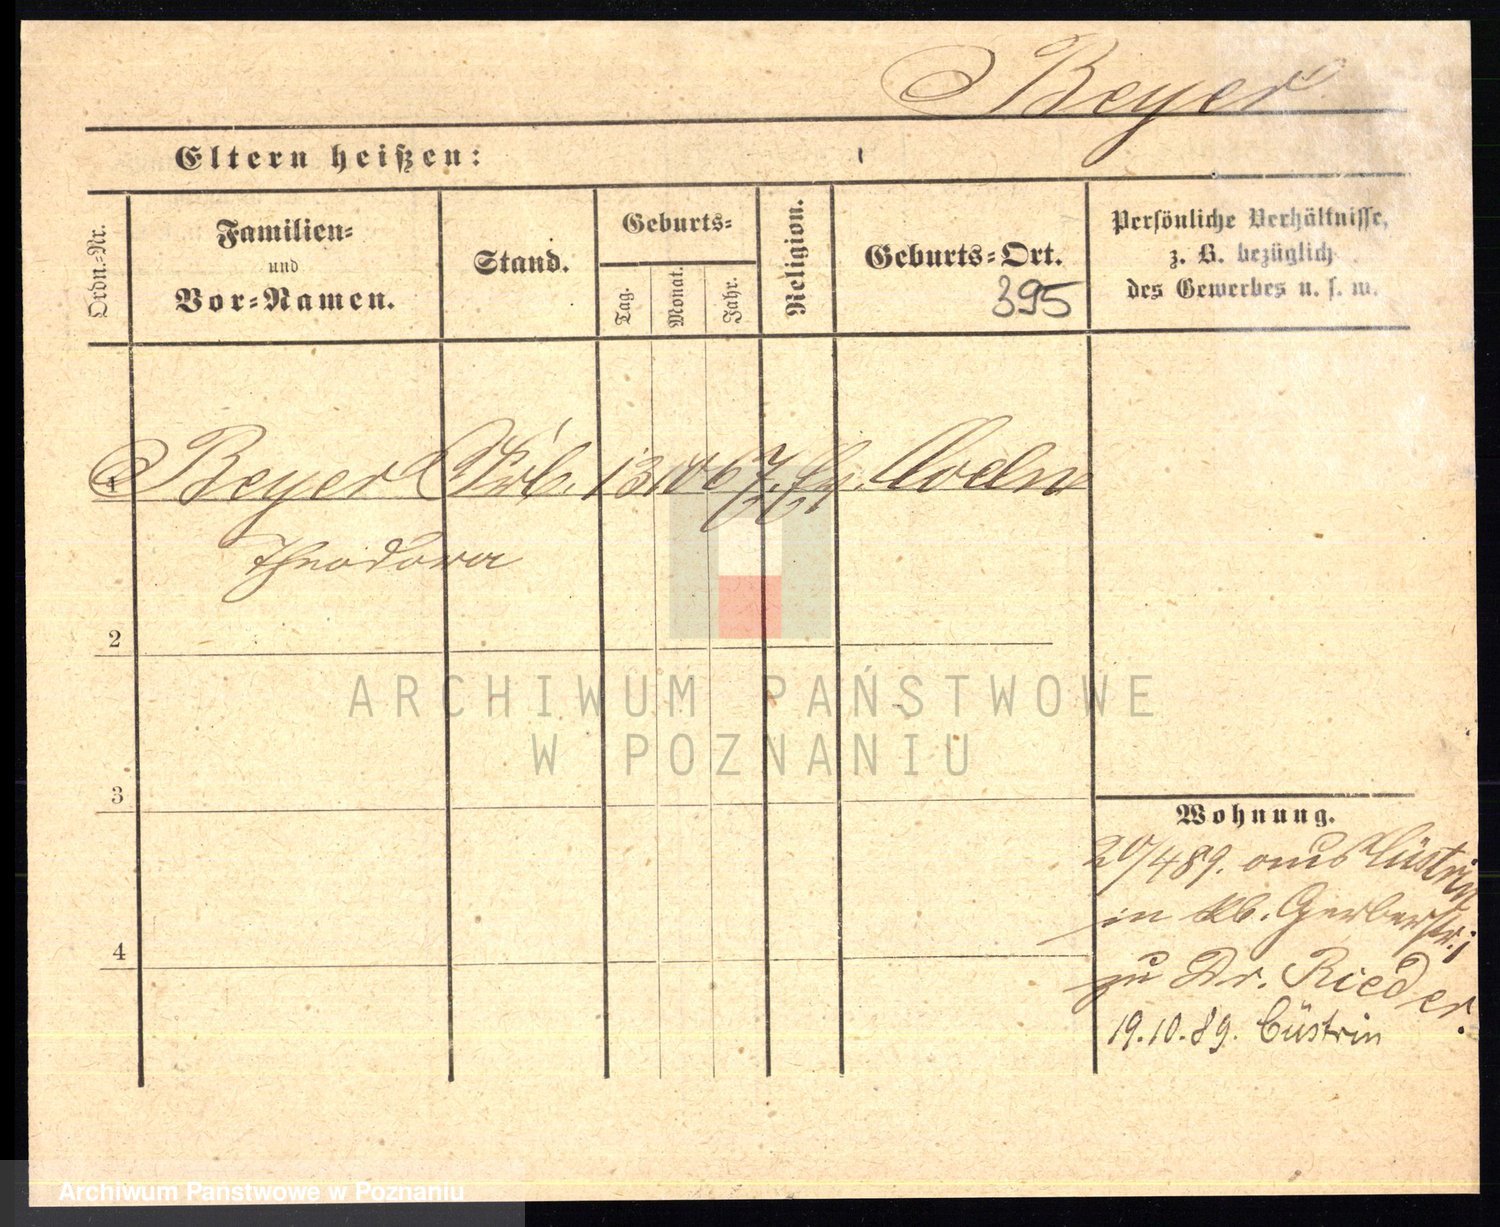 Beyer
Eltern heißen:
Ordn.-Nr.
Familien-
und
Vor-Namen.
Stand.
Geburts-
Tag.
Monat.
Jahr.
Religion.
Geburts-Ort.
395
Persönliche Verhältnisse,
z. B. bezüglich
des Gewerbes u. s. w.
1 Beyer 13 10 67
Theodora
2
3
4
Wohnung.
20/4 89. aus Cüstrin
in Gerberstr.
zu Dr. Rieder.
19.10.89. Cüstrin
ARCHIWUM PAŃSTWOWE
W POZNANIU
Archiwum Panstwowe w Poznaniu